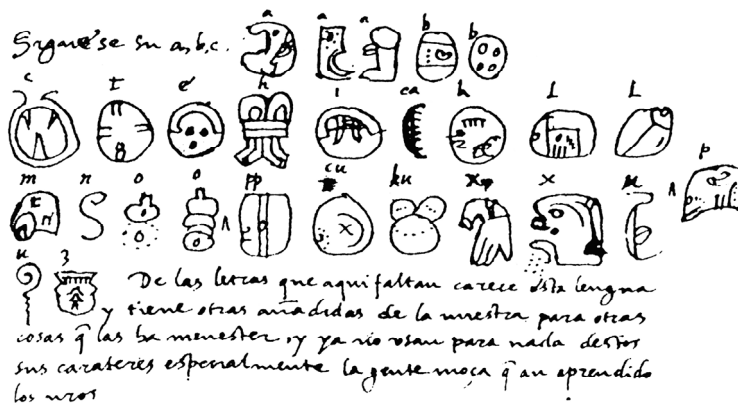 Siguese su a, b, c. a a a b b
c t e h i ca k l l
m n o o pp cu ku x x u p
u z De las letras que aqui faltan carece esta lengua
y tiene otras añadidas de la nuestra para otras
cosas q̄ las ha menester, y ya no usan para nada destos
sus carateres especialmente la gente moça q̄ an aprendido
los nros